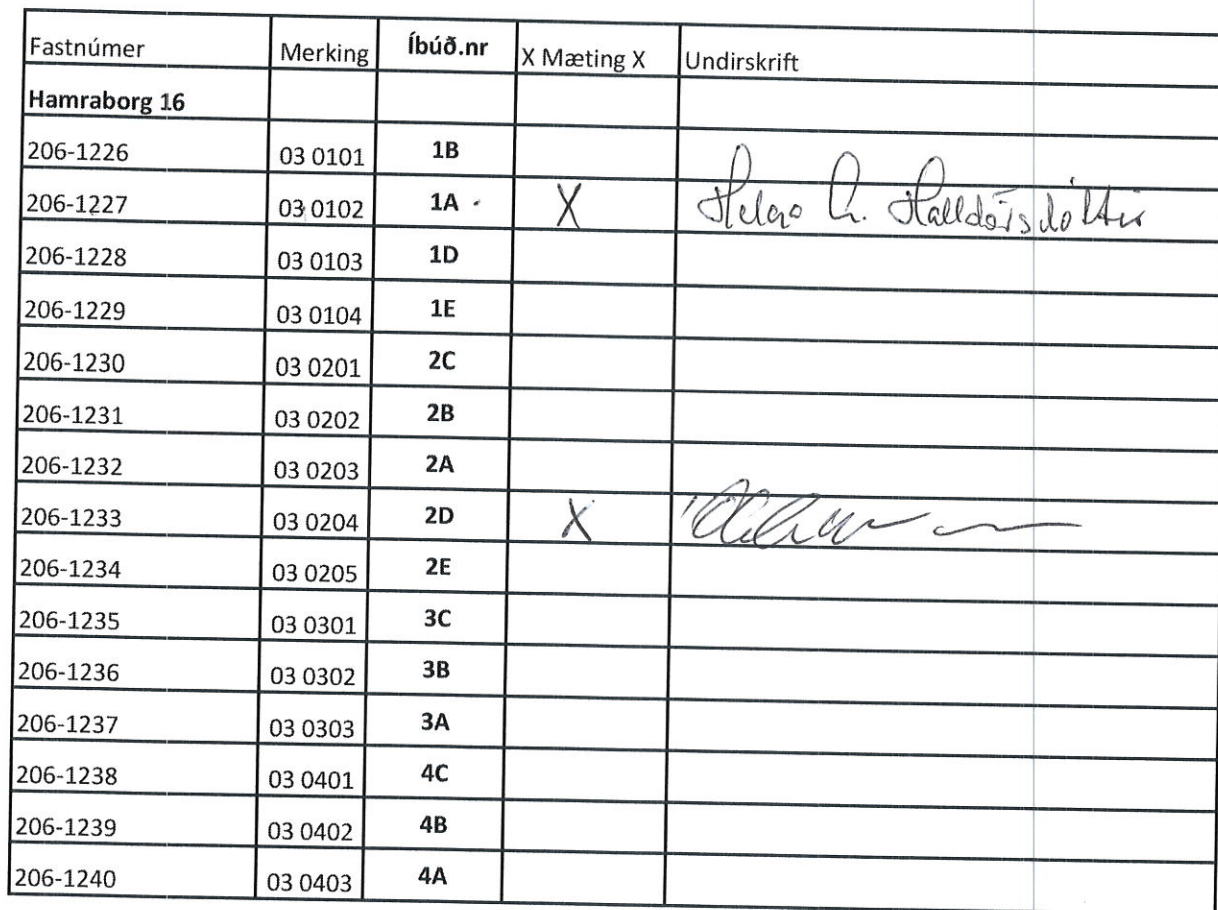 Fastnúmer Merking Íbúð.nr X Mæting X Undirskrift
Hamraborg 16
206-1226 03 0101 1B
206-1227 03 0102 1A X Helga G. Halldórsdóttir
206-1228 03 0103 1D
206-1229 03 0104 1E
206-1230 03 0201 2C
206-1231 03 0202 2B
206-1232 03 0203 2A
206-1233 03 0204 2D X
206-1234 03 0205 2E
206-1235 03 0301 3C
206-1236 03 0302 3B
206-1237 03 0303 3A
206-1238 03 0401 4C
206-1239 03 0402 4B
206-1240 03 0403 4A